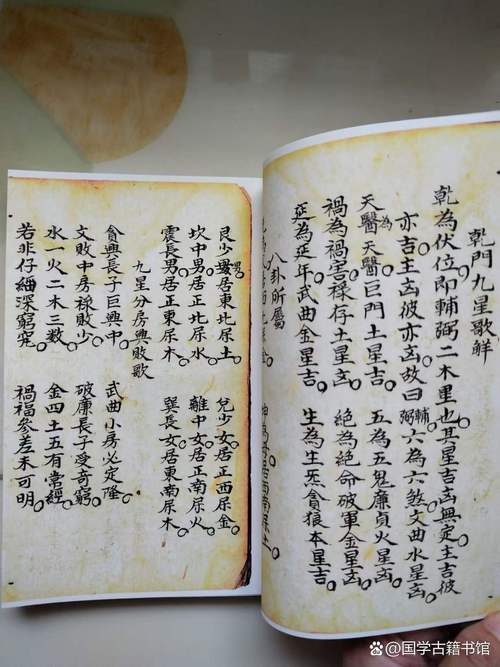 乾門九星歌鮮
乾為伏位即輔弼二木星也其星吉凶無定主吉彼
亦吉主凶彼亦凶故曰輔弼 六為六煞文曲水星凶
天醫為天醫巨門土星吉 五為五鬼廉貞火星凶
禍為禍害祿存土星凶 絕為絕命破軍金星凶
延為延年武曲金星吉 生為生炁貪狼木星吉
八卦所屬
艮少男居東北屬土 兌少女居正西屬金
坎中男居正北屬水 離中女居正南屬火
震長男居正東屬木 巽長女居東南屬木
九星分房興敗歌
貪興長子巨興中 武曲小房必定隆
文敗中房祿敗少 破廉長子受奇窮
水一火二木三數 金四土五有常經
若非仔細深窮究 禍福參差未可明
@国学古籍书馆